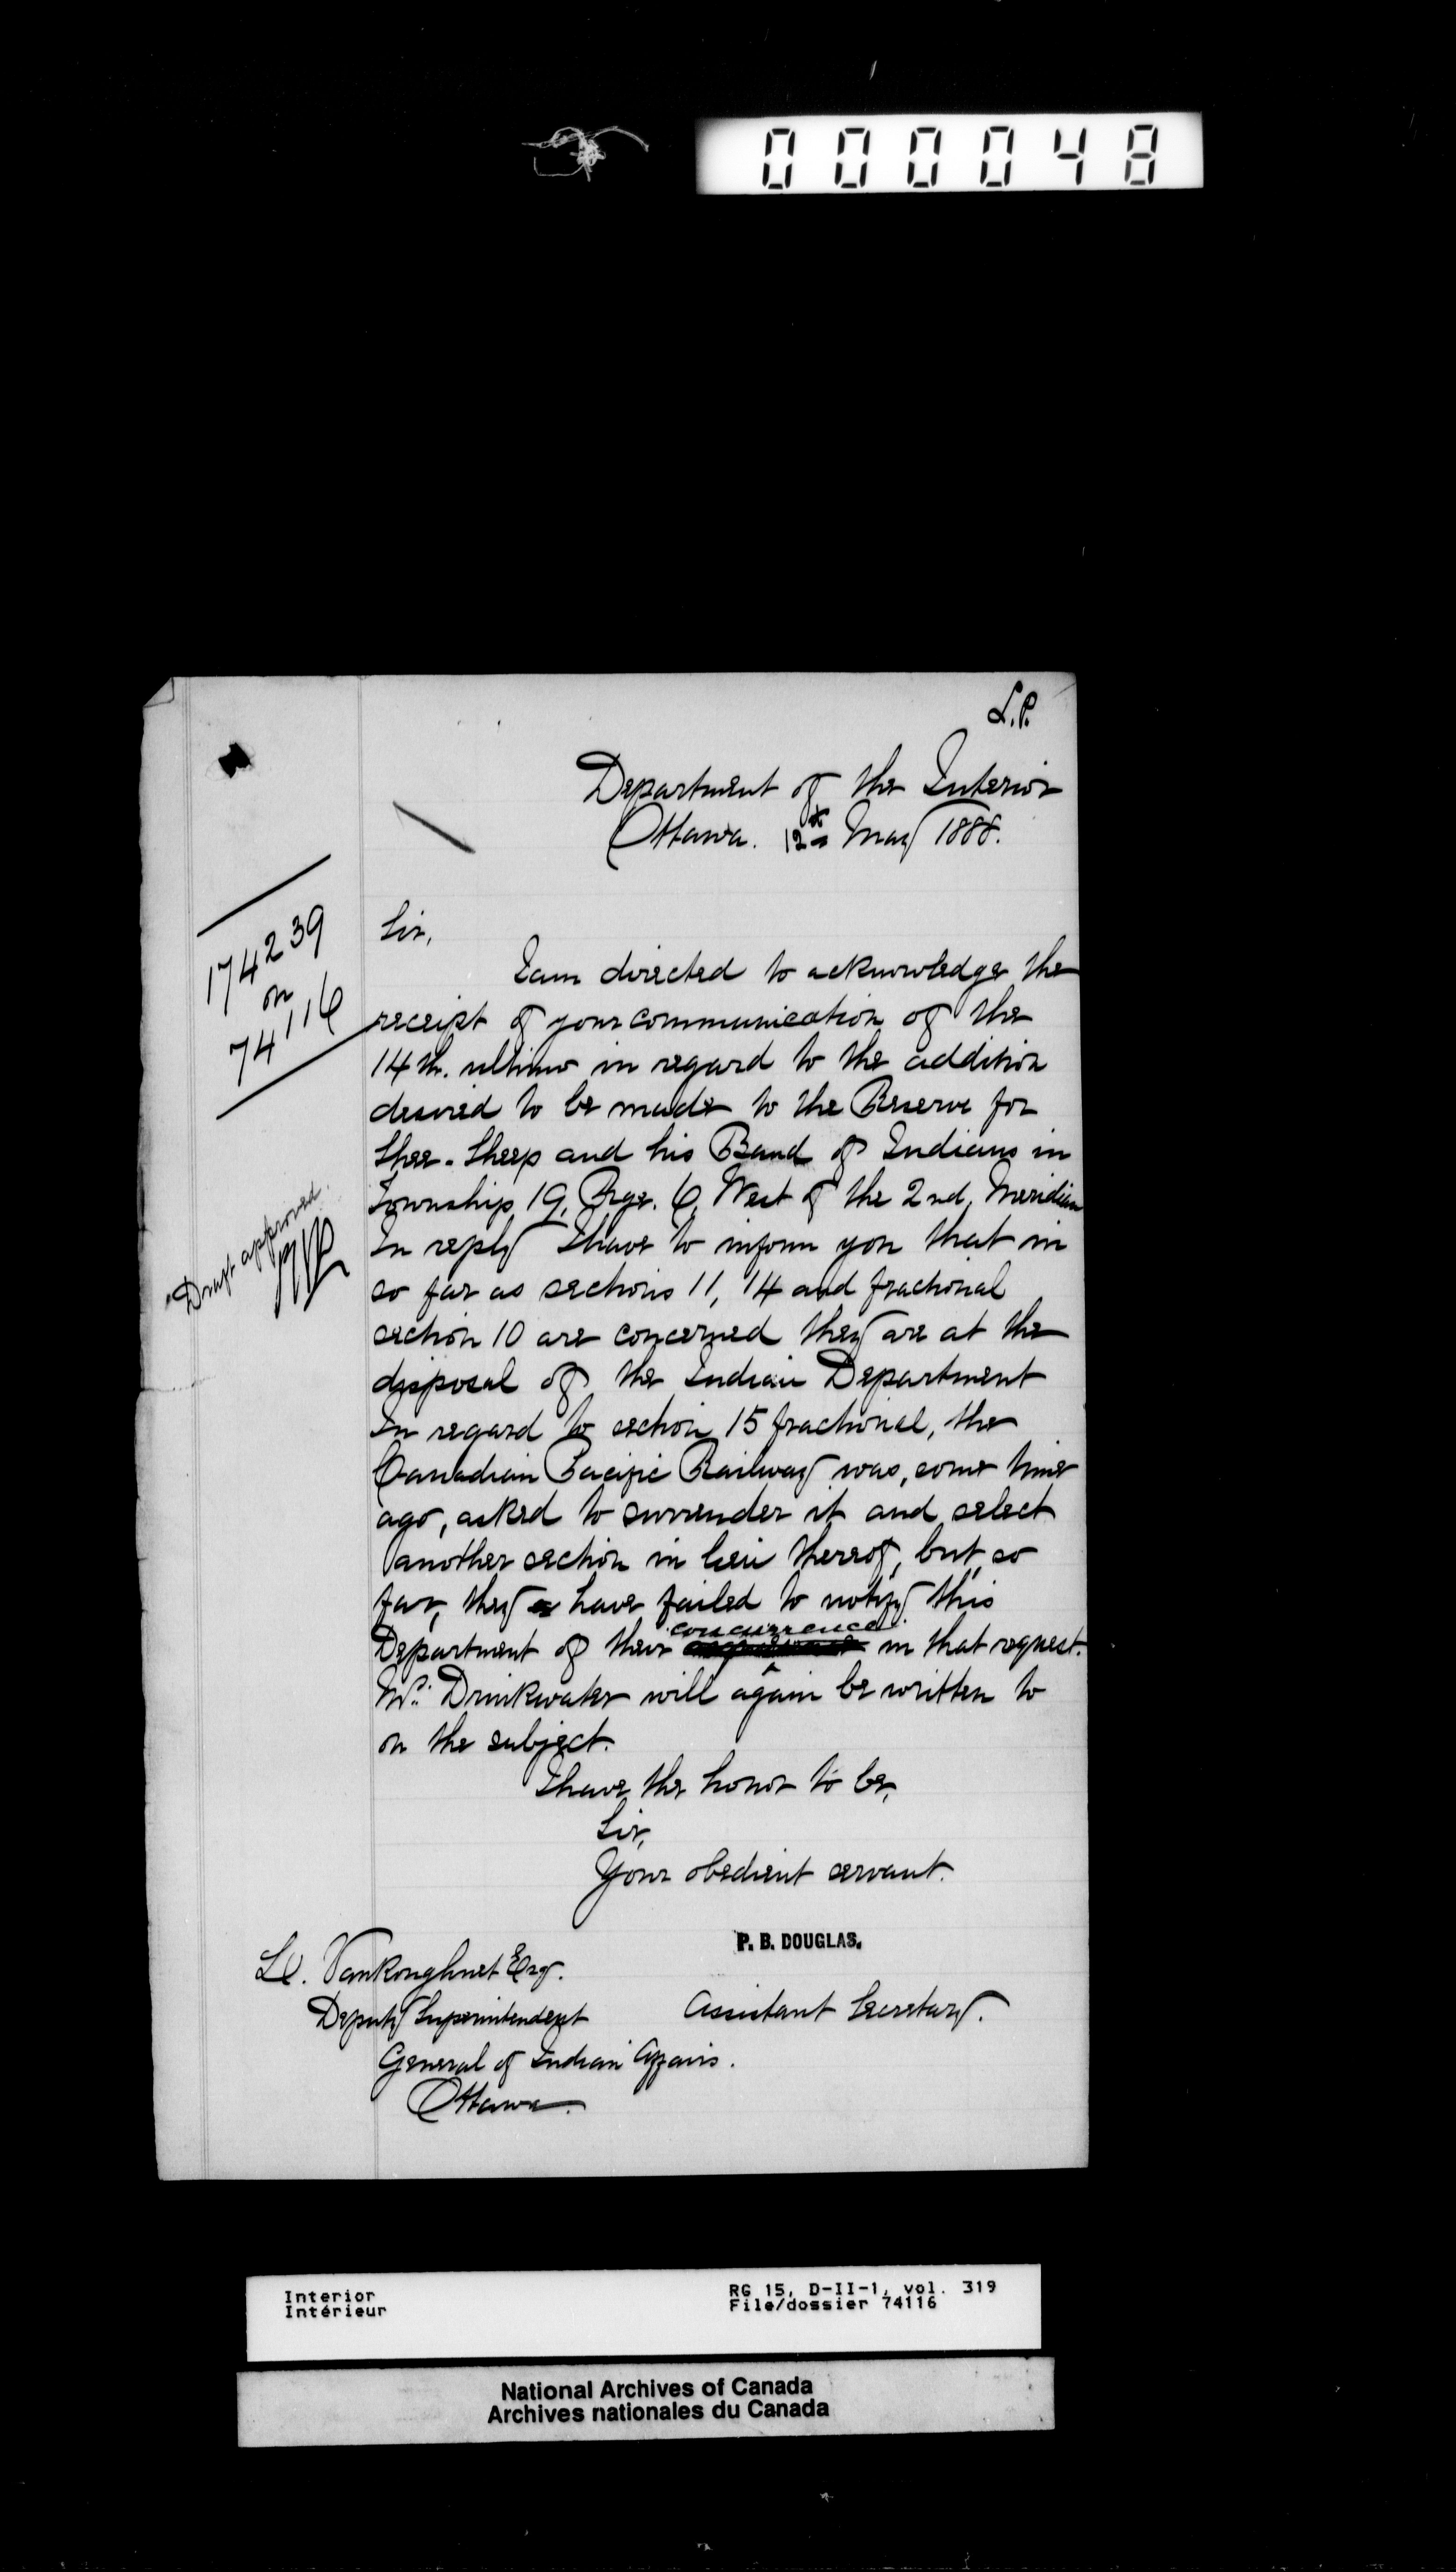 000048
L.P.
Department of the Interior
Ottawa. 12th May 1888.
174239
on
74116
Sir,
I am directed to acknowledge the
receipt of your communication of the
14th. ultimo in regard to the addition
desired to be made to the Reserve for
Shee-Sheep and his Band of Indians in
Township 19, Rge. 6, West of the 2nd Meridian
"Draft approved.
In reply I have to inform you that in
so far as sections 11, 14 and fractional
section 10 are concerned they are at the
disposal of the Indian Department
In regard to section 15 fractional, the
Canadian Pacific Railway was, some time
ago, asked to surrender it and select
another section in lieu thereof, but, so
far, they have failed to notify this
Department of their concurrence in that request.
Mr. Drinkwater will again be written to
on the subject.
I have the honor to be,
Sir,
Your obedient servant.
P. B. DOUGLAS.
Assistant Secretary.
L. Vankoughnet Esq.
Deputy Superintendent
General of Indian Affairs.
Ottawa.
Interior
Intérieur
RG 15, D-II-1, vol. 319
File/dossier 74116
National Archives of Canada
Archives nationales du Canada